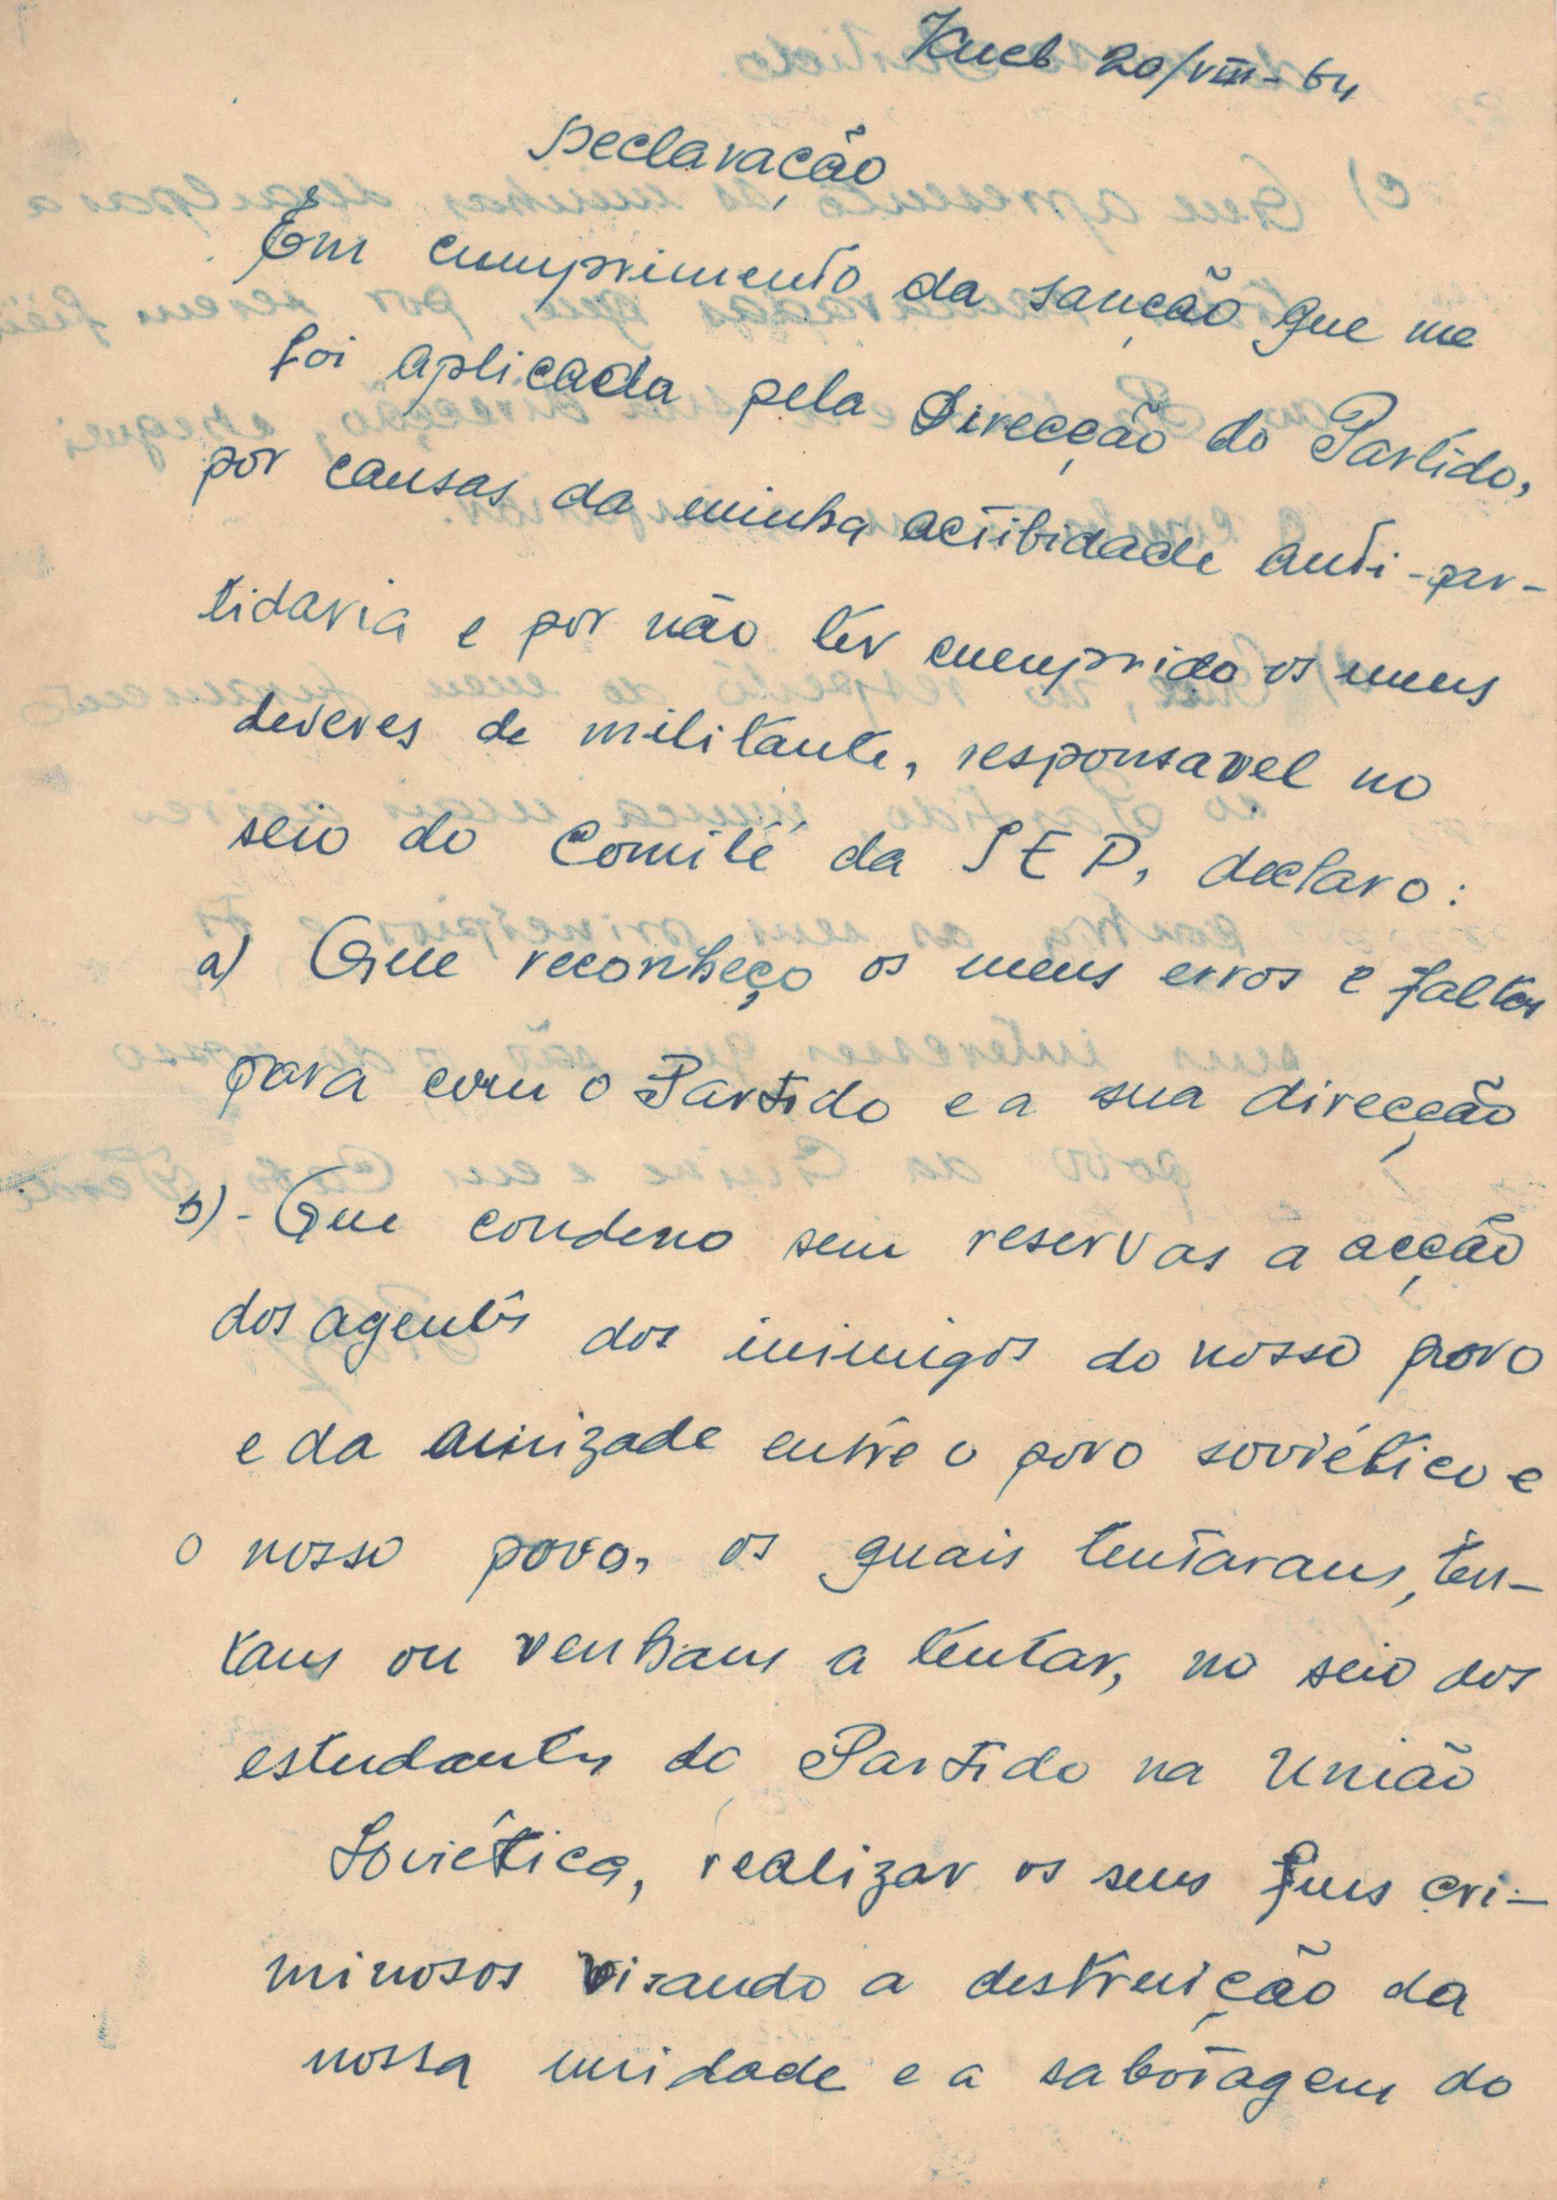 Kueb 20/VIII-64
Declaração
Em cumprimento da sanção que me
foi aplicada pela Direcção do Partido,
por causas da minha actibidade anti-par-
tidaria e por não ter cumprido os meus
deveres de militante, responsavel no
seio do Comité da SEP, declaro:
a) Que reconheço os meus erros e faltas
para com o Partido e a sua direcção
b)- Que condeno sem reservas a acção
dos agentes dos inimigos do nosso povo
e da amizade entre o povo soviético e
o nosso povo, os quais tentaram, ten-
tam ou venham a tentar, no seio dos
estudantes do Partido na União
Soviética, realizar os seus fins cri-
minosos visando a destruição da
nossa unidade e a sabotagem do